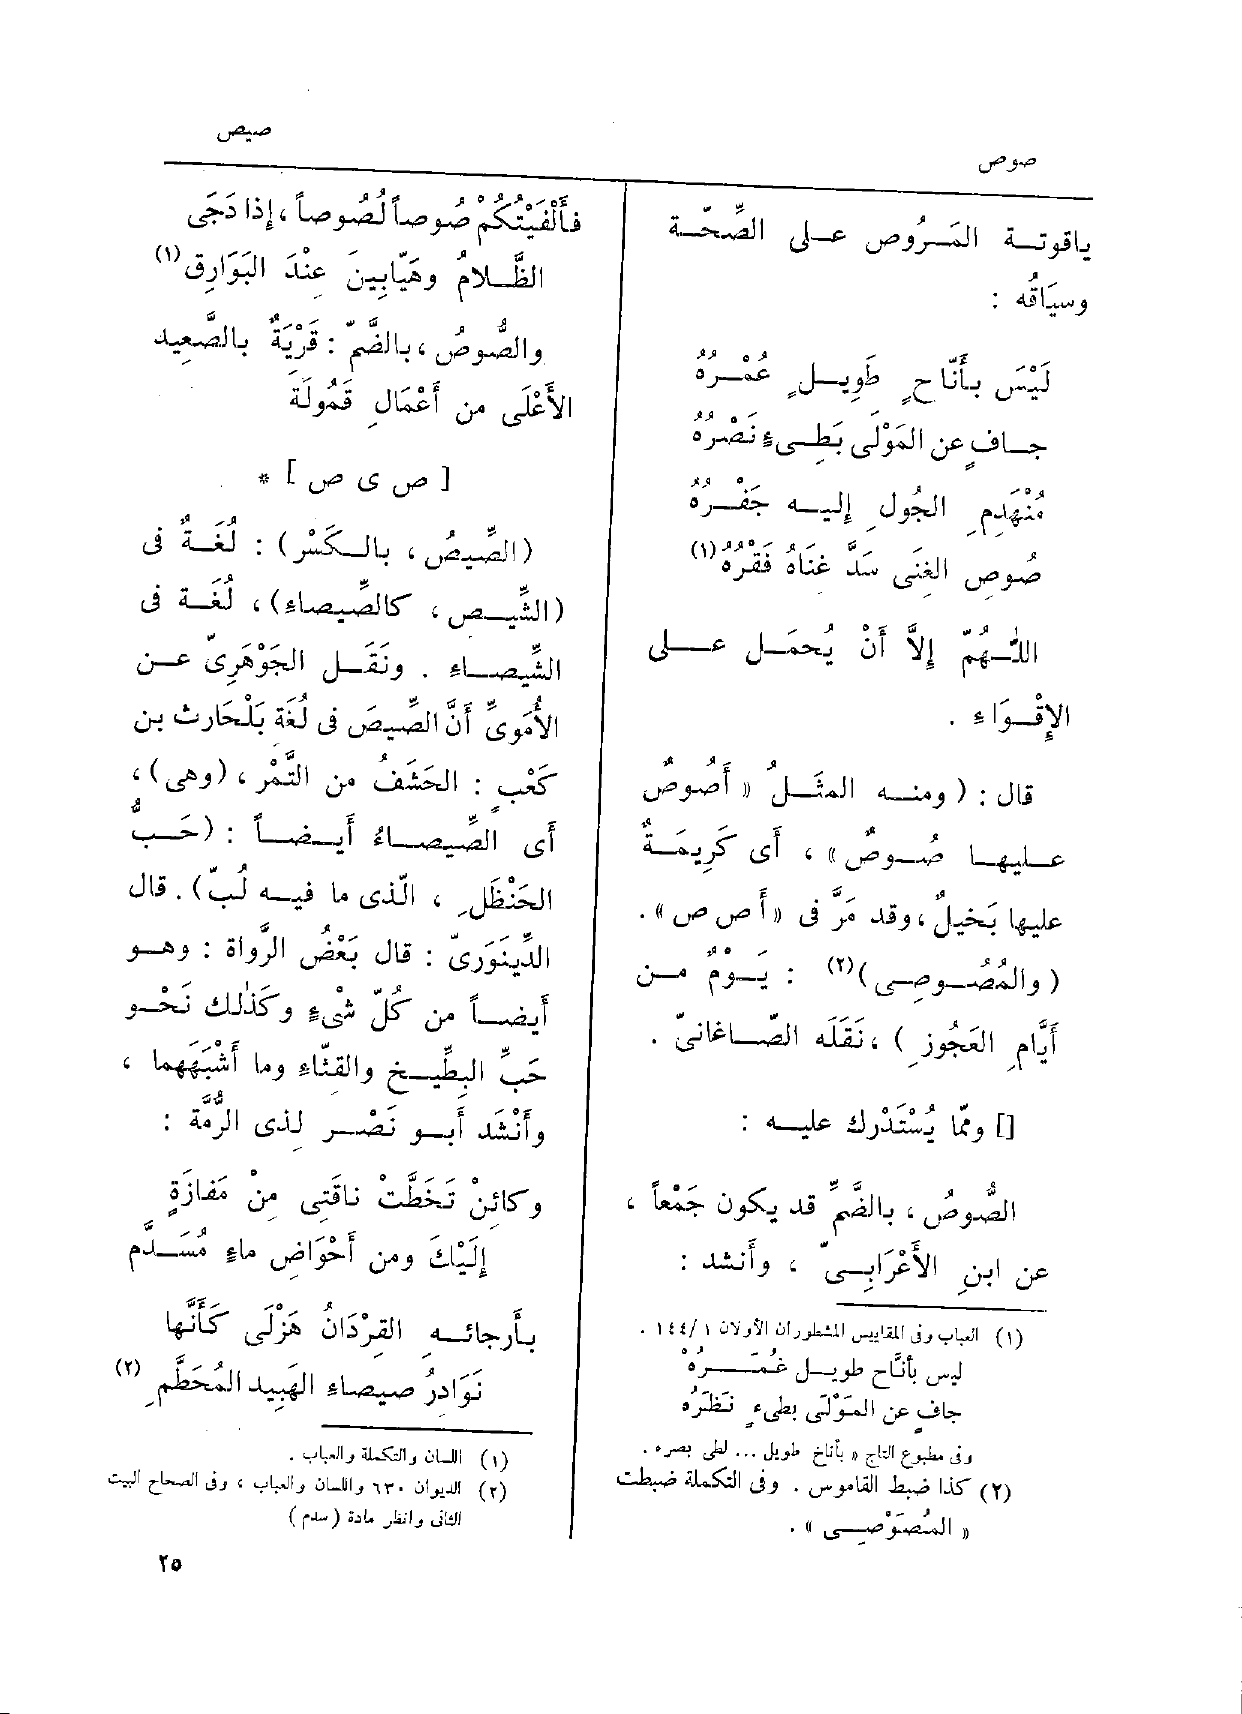 صوص
صيص
ياقوتــة المَــرُوص عــلى الصِّحّــة
وسيَاقُه :
لَيْسَ بأَنّاحٍ طَوِيــلٍ عُمْــرُهُ
جــافٍ عن المَوْلَى بَطِىءٍ نَصْرُهُ
مُنْهَدِمِ الجُولِ إليــه جَفْــرُهُ
صُوصِ الغِنَى سَدَّ غِنَاهُ فَقْرُهُ (١)
اللّٰــهُمّ إِلاَّ أَنْ يُحمَــل عــلى
الإِقْــوَاءِ .
قال : ( ومنــه المثَــلُ « أَصُوصٌ
عــليهــا صُــوصٌ » ، أى كَرِيمَــةٌ
عليها بَخيلٌ ، وقد مَرَّ فى « أ ص ص » .
( والمُصُــوصِــى )(٢) : يَــوْمٌ مــن
أَيّامِ العَجُوزِ ) ، نَقَلَه الصّــاغانىّ .
[] وممّا يُسْتَدْرك عليــه :
الصُّوصُ ، بالضَّمِّ قد يكون جَمْعاً ،
عن ابنِ الأَعْرَابــىّ ، وأَنشد :
(١) العباب وفى المقاييس المشطوران الأولان ١/ ١٤٤ .
ليس بأَنَّاح طويــل غُمَــرُهْ
جافٍ عن المَوْلَى بطىءٍ نَظَرُه
وفى مطبوع التاج « بأناخ طويل ... لطى بصره .
(٢) كذا ضبط القاموس . وفى التكملة ضبطت
« المُصَوْصِــى » .
فأَلْفَيْتُكُمْ صُوصاً لُصُوصاً ، إذا دَجَى
الظَّــلامُ وهَيّابِينَ عِنْدَ البَوَارِقِ(١)
والصُّوصُ ، بالضّمّ : قَرْيَةٌ بالصَّعِيد
الأَعْلَى من أَعْمَالِ قَمُولَة
[ ص ى ص ] *
(الصِّيصُ ، بالــكَسْر) : لُغَــةٌ فى
(الشِّيــص ، كالصِّيصاء) ، لُغَــة فى
الشِّيصــاء . ونَقَــل الجَوْهَرِىّ عــن
الأُمَوِىِّ أَنَّ الصِّيصَ فى لُغَة بَلْحَارث بن
كَعْبٍ : الحَشَفُ من التَّمْر ، (وهى) ،
أى الصِّيصــاءُ أَيــضــاً : (حَــبُّ
الحَنْظَلِ ، الّذى ما فيــه لُبّ) . قال
الدِّينَوَرِىّ : قال بَعْضُ الرُّواة : وهــو
أيضــاً من كُلّ شْىءٍ وكَذٰلك نَحْــو
حَبِّ البِطِّيــخ والقِثّاء وما أَشْبَهَهما ،
وأَنْشَد أَبــو نَصْــر لِذى الرُّمَّة :
وكائنْ تَخَطَّتْ ناقَتِى مِنْ مَفازَةٍ
إِلَيْكَ ومن أَحْوَاضِ ماءٍ مُسَــدَّمِ
بأَرجائــه القِرْدَانُ هَزْلَى كَأَنَّها
نَوَادِرُ صيصاءِ الهَبِيد المُحَطَّمِ (٢)
(١) اللسان والتكملة والعباب .
(٢) الديوان ٦٣٠ واللسان والعباب ، وفى الصحاح البيت
الثانى وانظر مادة ( سدم )
٢٥